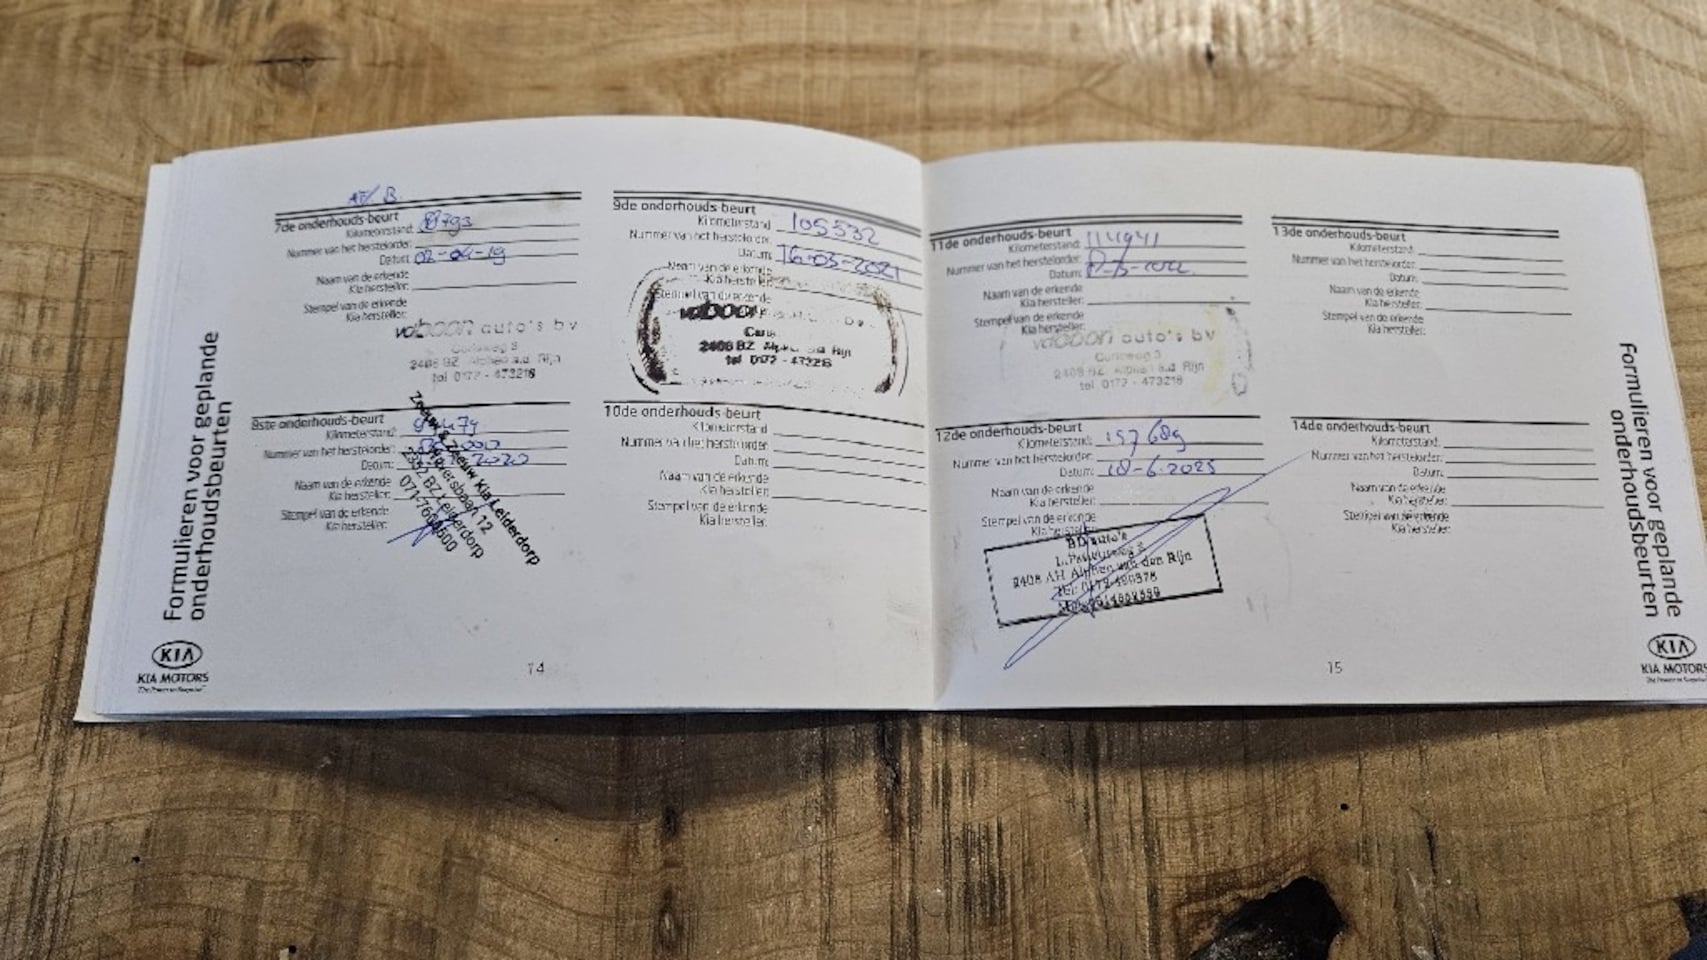 Formulieren voor geplande
onderhoudsbeurten
KIA
KIA MOTORS
The Power to Surprise
7de onderhouds-beurt
Kilometerstand:
Nummer van het herstelorder:
Datum: 02-04-19
Naam van de erkende
Kia hersteller:
Stempel van de erkende
Kia hersteller:
vd boon auto's bv
Curieweg 3
2408 BZ Alphen a.d. Rijn
tel 0172 - 473216
8ste onderhouds-beurt
Kilometerstand:
Nummer van het herstelorder:
Datum: 2020
Naam van de erkende
Kia hersteller:
Stempel van de erkende
Kia hersteller:
Zeeuw & Zeeuw Kia Leiderdorp
12
2352 BZ Leiderdorp
9de onderhouds-beurt
Kilometerstand: 105532
Nummer van het herstelorder:
Datum: 16-03-2021
Naam van de erkende
Kia hersteller:
Stempel van de erkende
vd boon
2408 BZ Alphen a.d. Rijn
tel 0172 - 473216
10de onderhouds-beurt
Kilometerstand:
Nummer van het herstelorder:
Datum:
Naam van de erkende
Kia hersteller:
Stempel van de erkende
Kia hersteller:
14
11de onderhouds-beurt
Kilometerstand: 114941
Nummer van het herstelorder:
Datum:
Naam van de erkende
Kia hersteller:
Stempel van de erkende
Kia hersteller:
vd boon auto's bv
Curieweg 3
2408 BZ Alphen a.d. Rijn
tel 0172 - 473216
12de onderhouds-beurt
Kilometerstand: 157689
Nummer van het herstelorder:
Datum: 18-6-2025
Naam van de erkende
Kia hersteller:
Stempel van de erkende
Kia hersteller:
BD auto's
2408 AH Alphen van den Rijn
13de onderhouds-beurt
Kilometerstand:
Nummer van het herstelorder:
Datum:
Naam van de erkende
Kia hersteller:
Stempel van de erkende
Kia hersteller:
14de onderhouds-beurt
Kilometerstand:
Nummer van het herstelorder:
Datum:
Naam van de erkende
Kia hersteller:
Stempel van de erkende
Kia hersteller:
15
Formulieren voor geplande
onderhoudsbeurten
KIA
KIA MOTORS
The Power to Surprise